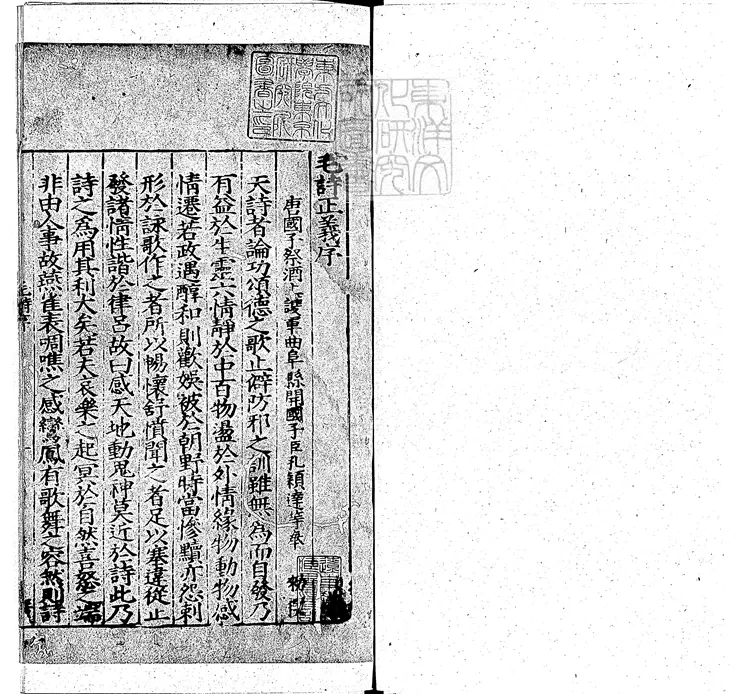 毛詩正義序
唐國子祭酒上護軍曲阜縣開國子臣孔穎達等奉 勑撰
夫詩者論功頌德之歌止僻防邪之訓雖無為而自發乃
有益於生靈六情靜於中百物盪於外情緣物動物感
情遷若政遇醇和則歡娛被於朝野時當慘黷亦怨剌
形於詠歌作之者所以暢懷舒憤聞之者足以塞違從止
發諸情性諧於律呂故曰感天地動鬼神莫近於詩此乃
詩之為用其利大矣若夫哀樂之起冥於自然喜怒之端
非由人事故燕雀表啁噍之感鸞鳳有歌舞之容然則詩
東方文化學院東京研究所圖書之印